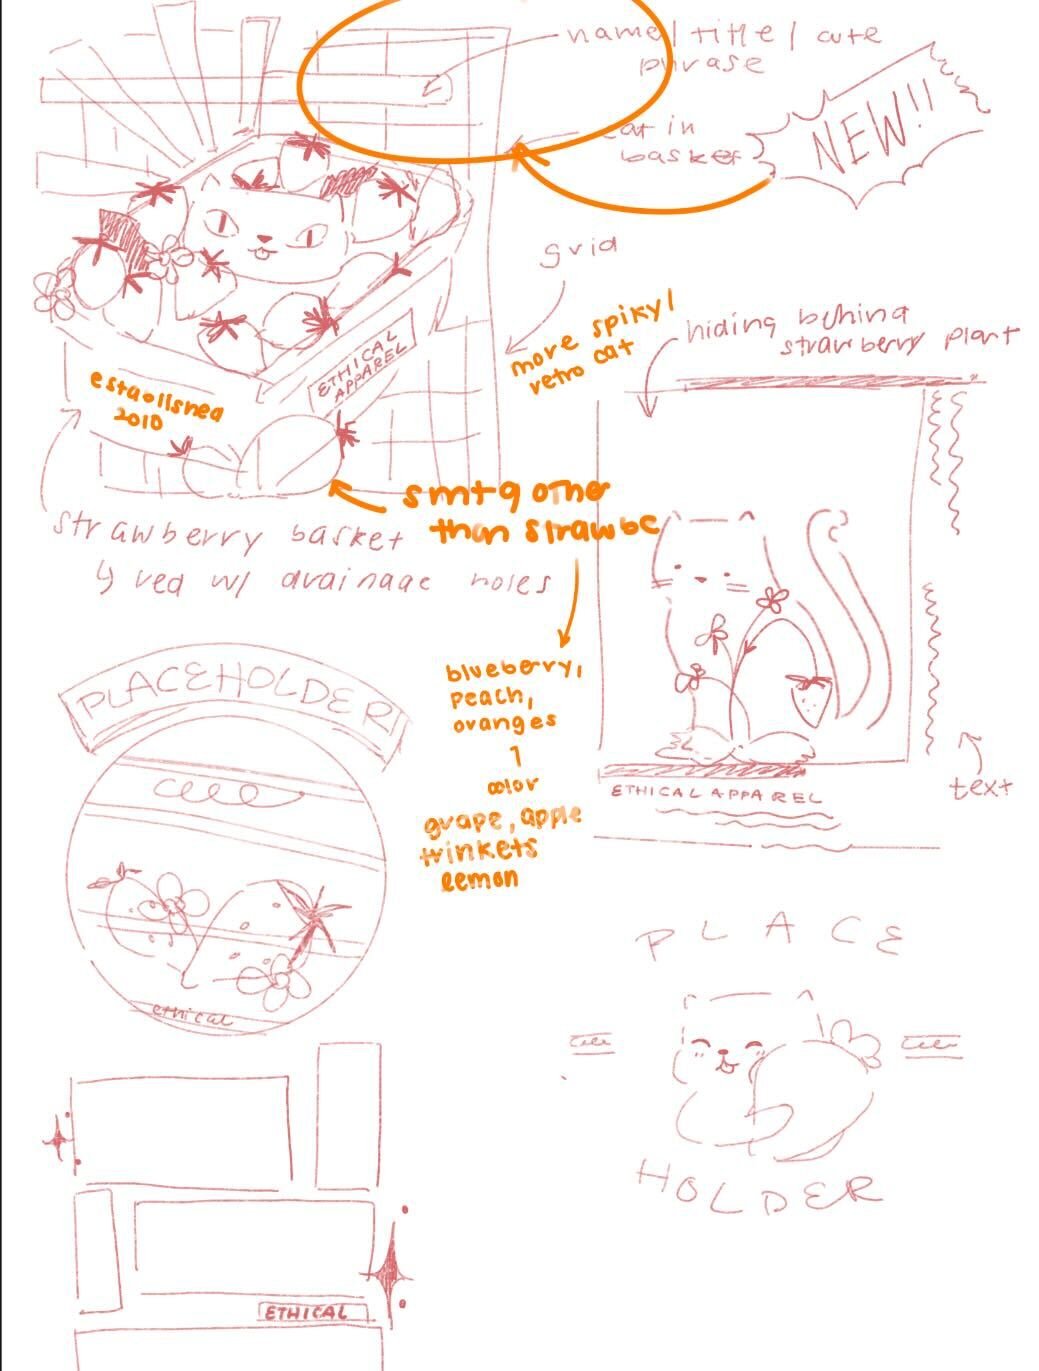 name / title / cute
phrase
cat in
basket
NEW!!
grid
more spiky /
retro cat
hiding behind
strawberry plant
ETHICAL
APPAREL
established
2010
smtg other
than strawbe
strawberry basket
↳ red w/ drainage holes
blueberry,
peach,
oranges
color
grape, apple
trinkets
lemon
ETHICAL APPAREL
text
PLACEHOLDER
ethical
PLACE
HOLDER
ETHICAL